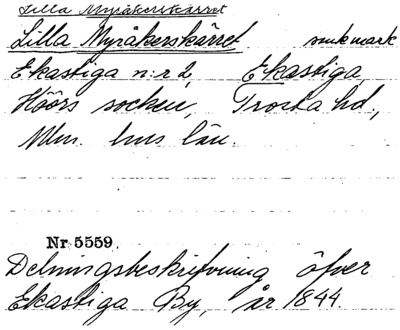 Lilla Myråkerskärret
Lilla Myråkerskärret sankmark
Ekastiga n:r 2, Ekastiga,
Höörs socken, Frosta hd.,
Mlm. hus län.
Nr 5559.
Delningsbeskrifvning öfver
Ekastiga By, år 1844.